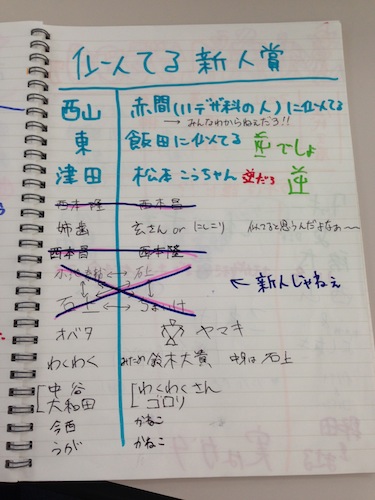 似てる新人賞
西山 赤間(11デザ科の人)に似てる
→みんなわからねぇだろ!!
東 飯田に似てる 逆でしょ
津田 松石こうちゃん 逆だろ 逆
西本隆 西本昌
姉歯 玄さん or にしこり 似てると思うんだよなぁ〜
西本昌 西本隆
石上
石上
← 新人じゃねぇ
オバタ ヤマキ
わくわく みため 鈴木大賞 中身は石上
中谷 わくわくさん
大和田 ゴロリ
今西 かねこ
うが かねこ